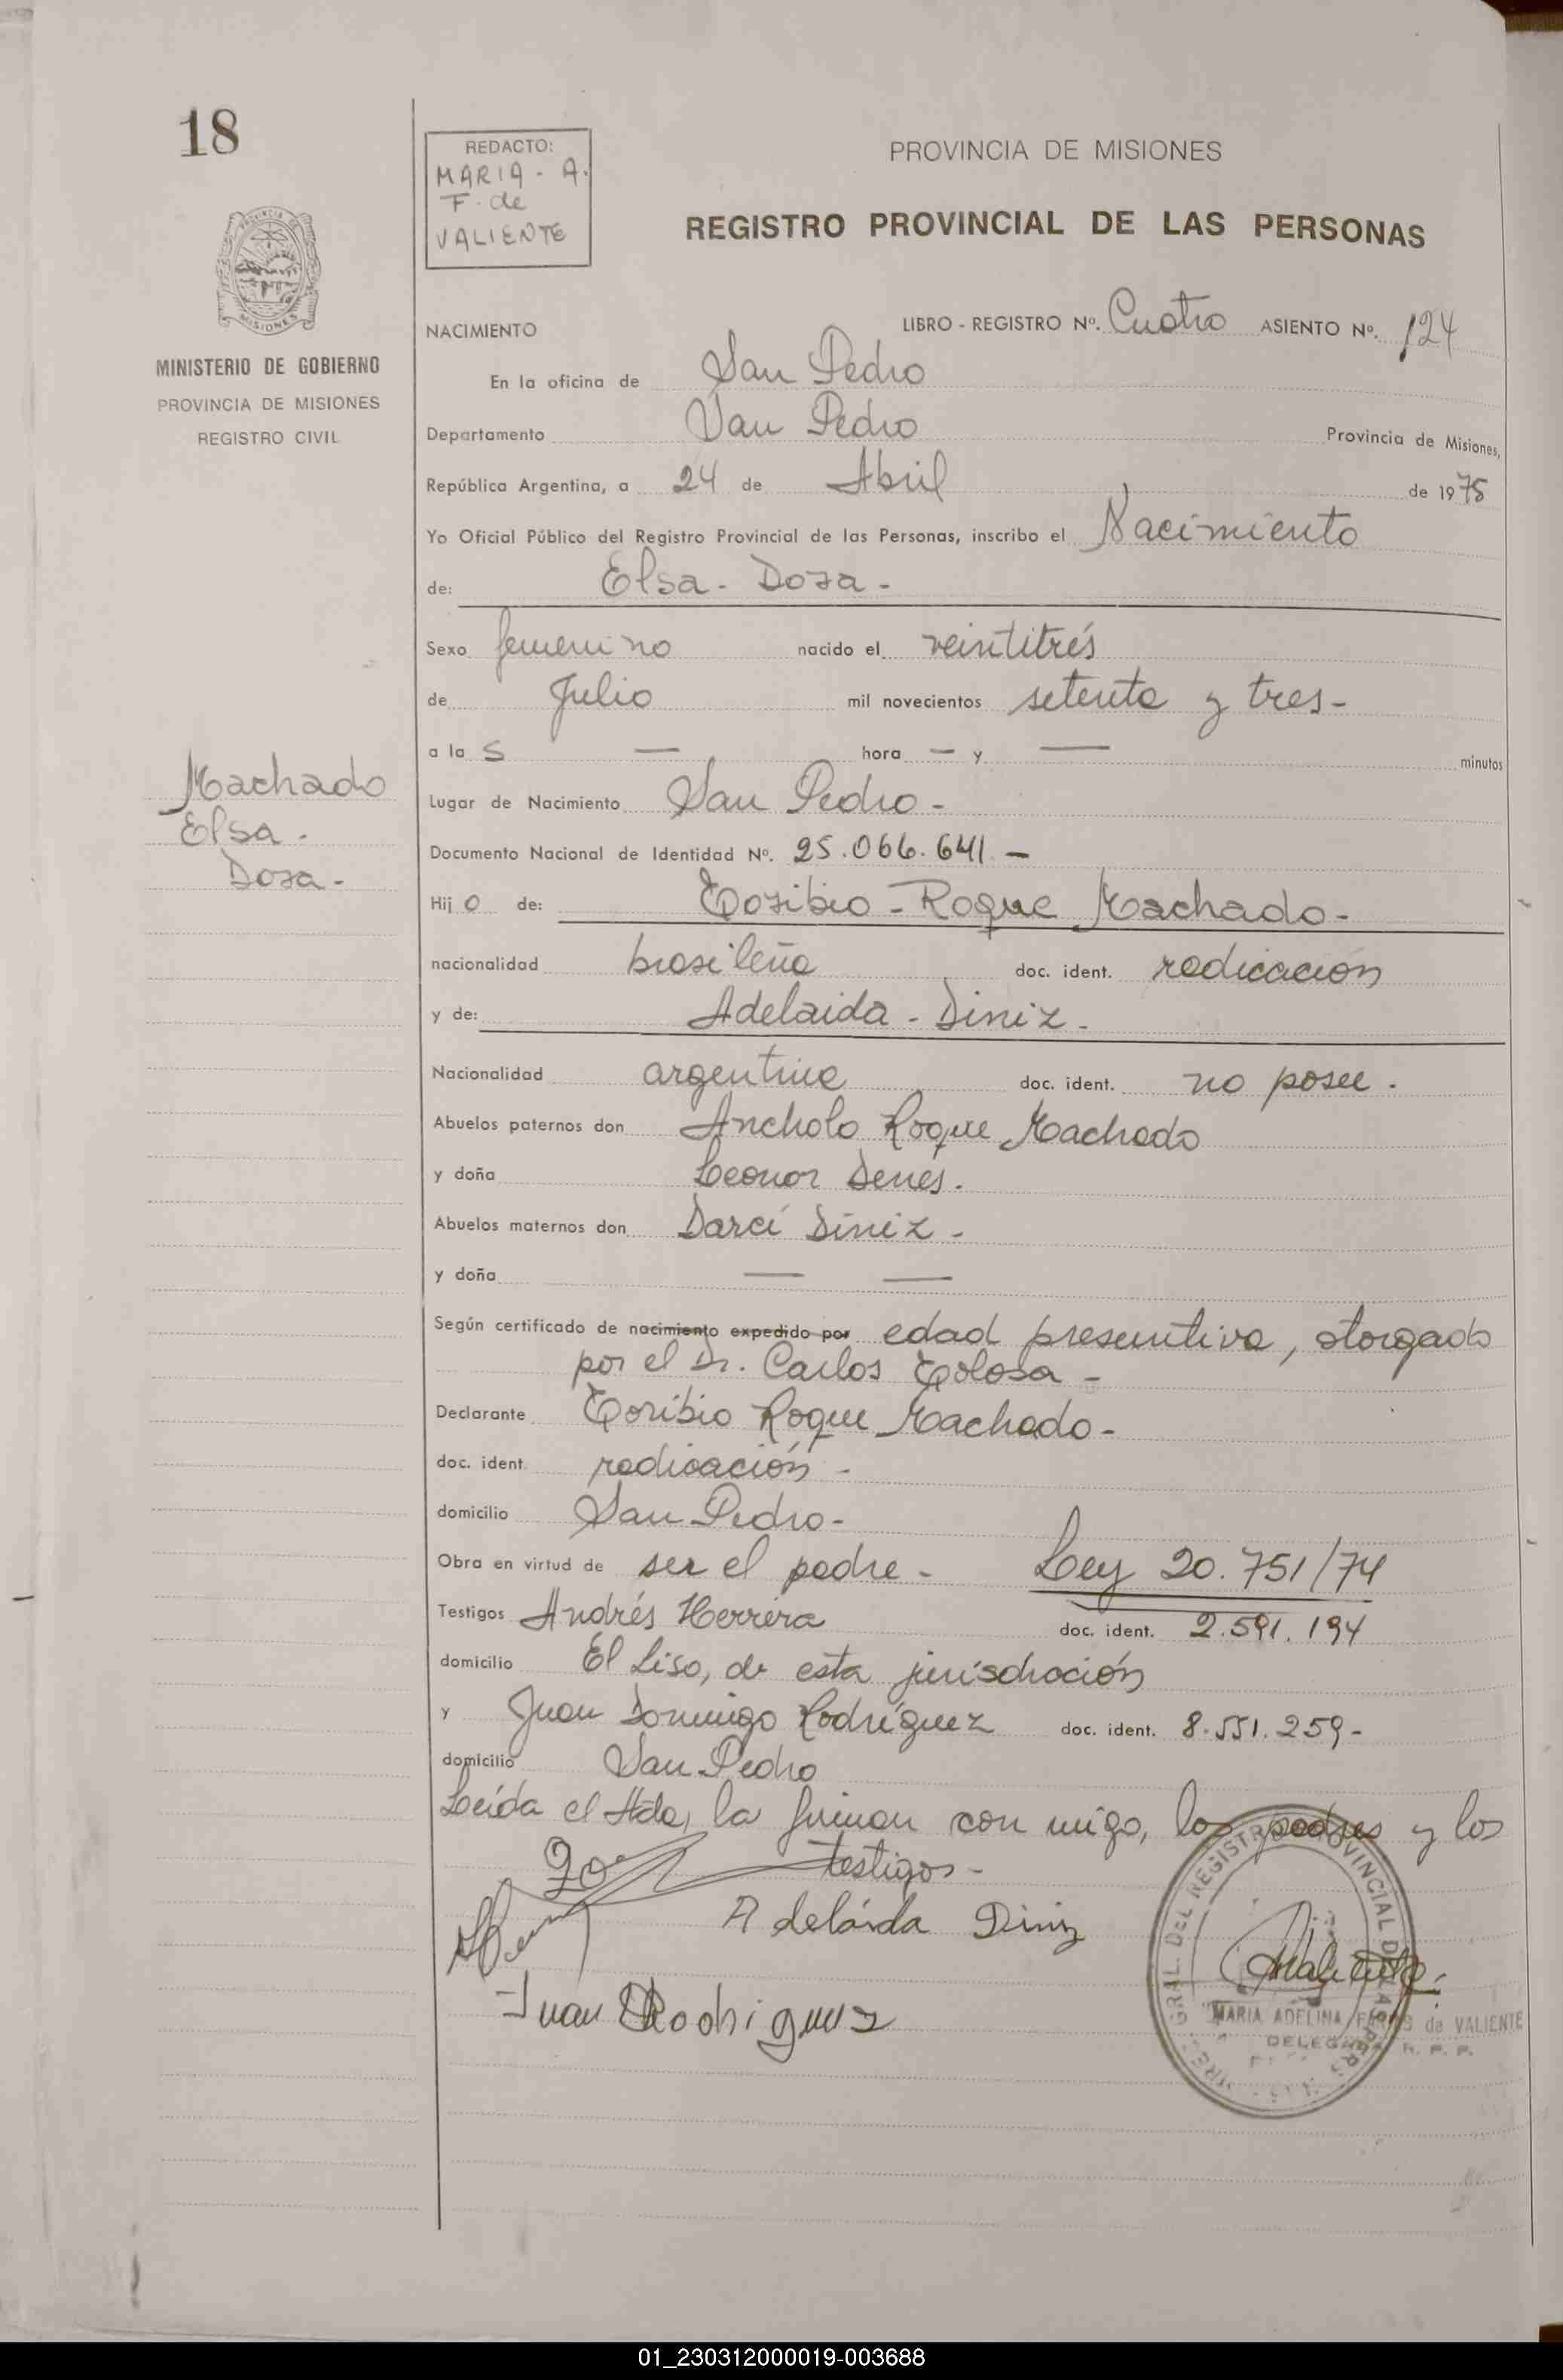 18
REDACTO:
MARIA - A.
F. de
VALIENTE
PROVINCIA DE MISIONES
REGISTRO PROVINCIAL DE LAS PERSONAS
MISIONES
MINISTERIO DE GOBIERNO
PROVINCIA DE MISIONES
REGISTRO CIVIL
NACIMIENTO LIBRO - REGISTRO Nº. Cuatro ASIENTO Nº. 124
En la oficina de San Pedro
Departamento San Pedro Provincia de Misiones,
República Argentina, a 24 de Abril de 1975
Yo Oficial Público del Registro Provincial de las Personas, inscribo el Nacimiento
de: Elsa - Dora -
Sexo femenino nacido el veintitrés
de Julio mil novecientos setenta y tres -
a la s — hora — y — minutos
Machado
Elsa -
Dora -
Lugar de Nacimiento San Pedro -
Documento Nacional de Identidad Nº. 25.066.641 —
Hij o de: Toribio - Roque Machado -
nacionalidad brasileña doc. ident. radicación
y de: Adelaida - Diniz -
Nacionalidad argentina doc. ident. no posee .
Abuelos paternos don Ancholo Roque Machado
y doña Leonor Denes .
Abuelos maternos don Darcí Diniz -
y doña — —
Según certificado de nacimiento expedido por edad presuntiva, otorgado
por el Dr. Carlos Tolosa -
Declarante Toribio Roque Machado -
doc. ident. radicación -
domicilio San Pedro -
Obra en virtud de ser el padre - Ley 20.751/74
Testigos Andrés Herrera doc. ident. 2.591.194
domicilio El Liso, de esta jurisdicción
y Juan Domingo Rodríguez doc. ident. 8.551.259 -
domicilio San Pedro
Leída el Acta, la firman con migo, los padres y los
testigos -
Adeláida Diniz
Juan Rodriguez
MARIA ADELINA de VALIENTE
DELEGADA R. P. P.
01_230312000019-003688